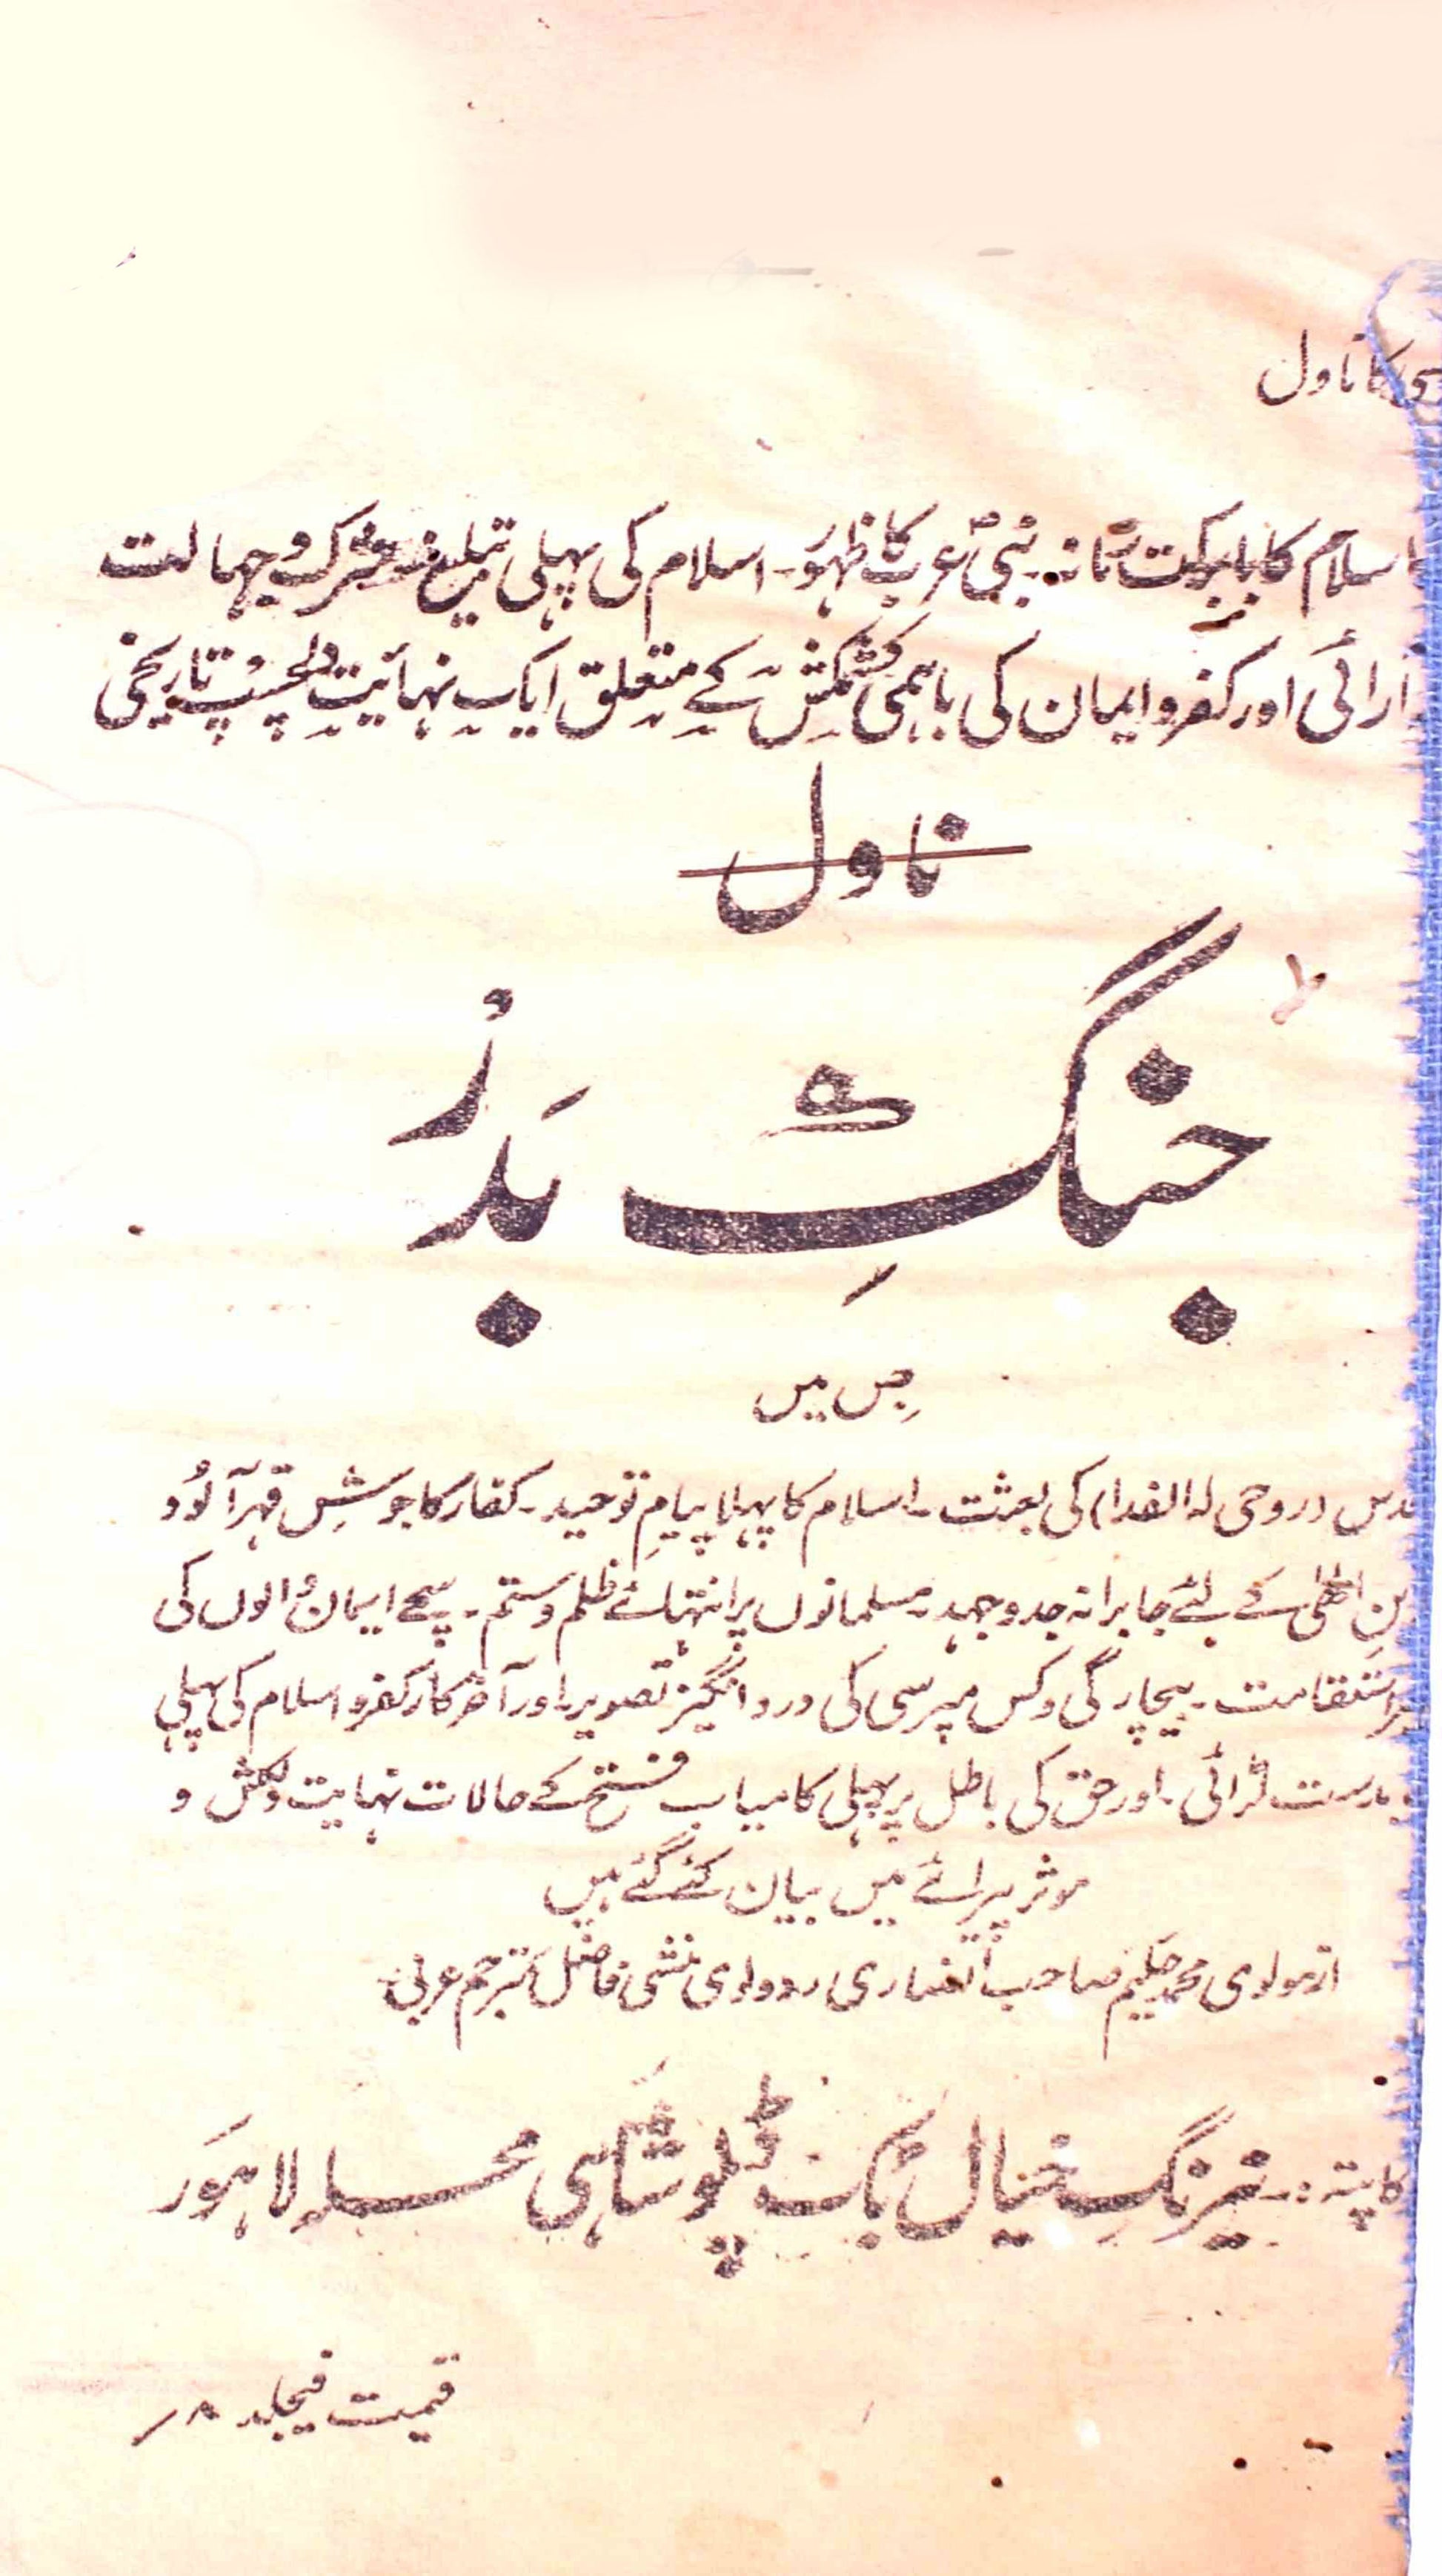 کا ناول
اسلام کا بابرکت زمانہ۔ نبیؐ عرب کا ظہور۔ اسلام کی پہلی تبلیغ شرک و جہالت
آرائی اور کفر و ایمان کی باہمی کشمکش کے متعلق ایک نہائت دلچسپ تاریخی
ناول
جنگِ بَدرْ
جِس میں
روحی لہ الفدا) کی بعثت۔ اسلام کا پہلا پیامِ توحید۔ کفار کا جوشِ قہر آلُود
کے لئے جابرانہ جدوجہد۔ مسلمانوں پر انتہائے ظلم و ستم۔ سچے ایمان والوں کی
استقامت۔ بیچارگی و کس مپرسی کی درد انگیز تصویر۔ اور آخر کار کفر و اسلام کی پہلی
لڑائی۔ اور حق کی باطل پر پہلی کامیاب فتح کے حالات نہایت دلکش و
موثر پیرائے میں بیان کئے گئے ہیں
از مولوی محمد حلیم صاحب انصاری ردولوی منشی فاضل مترجم عربی
کا پتہ:۔ نیرنگِ خیال بک ڈپو شاہی محلہ لاہور
قیمت فیجلد ۸؍